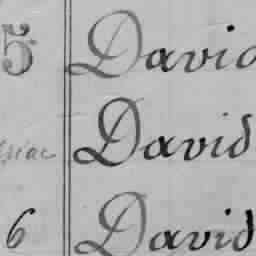 5 David
David
6 David